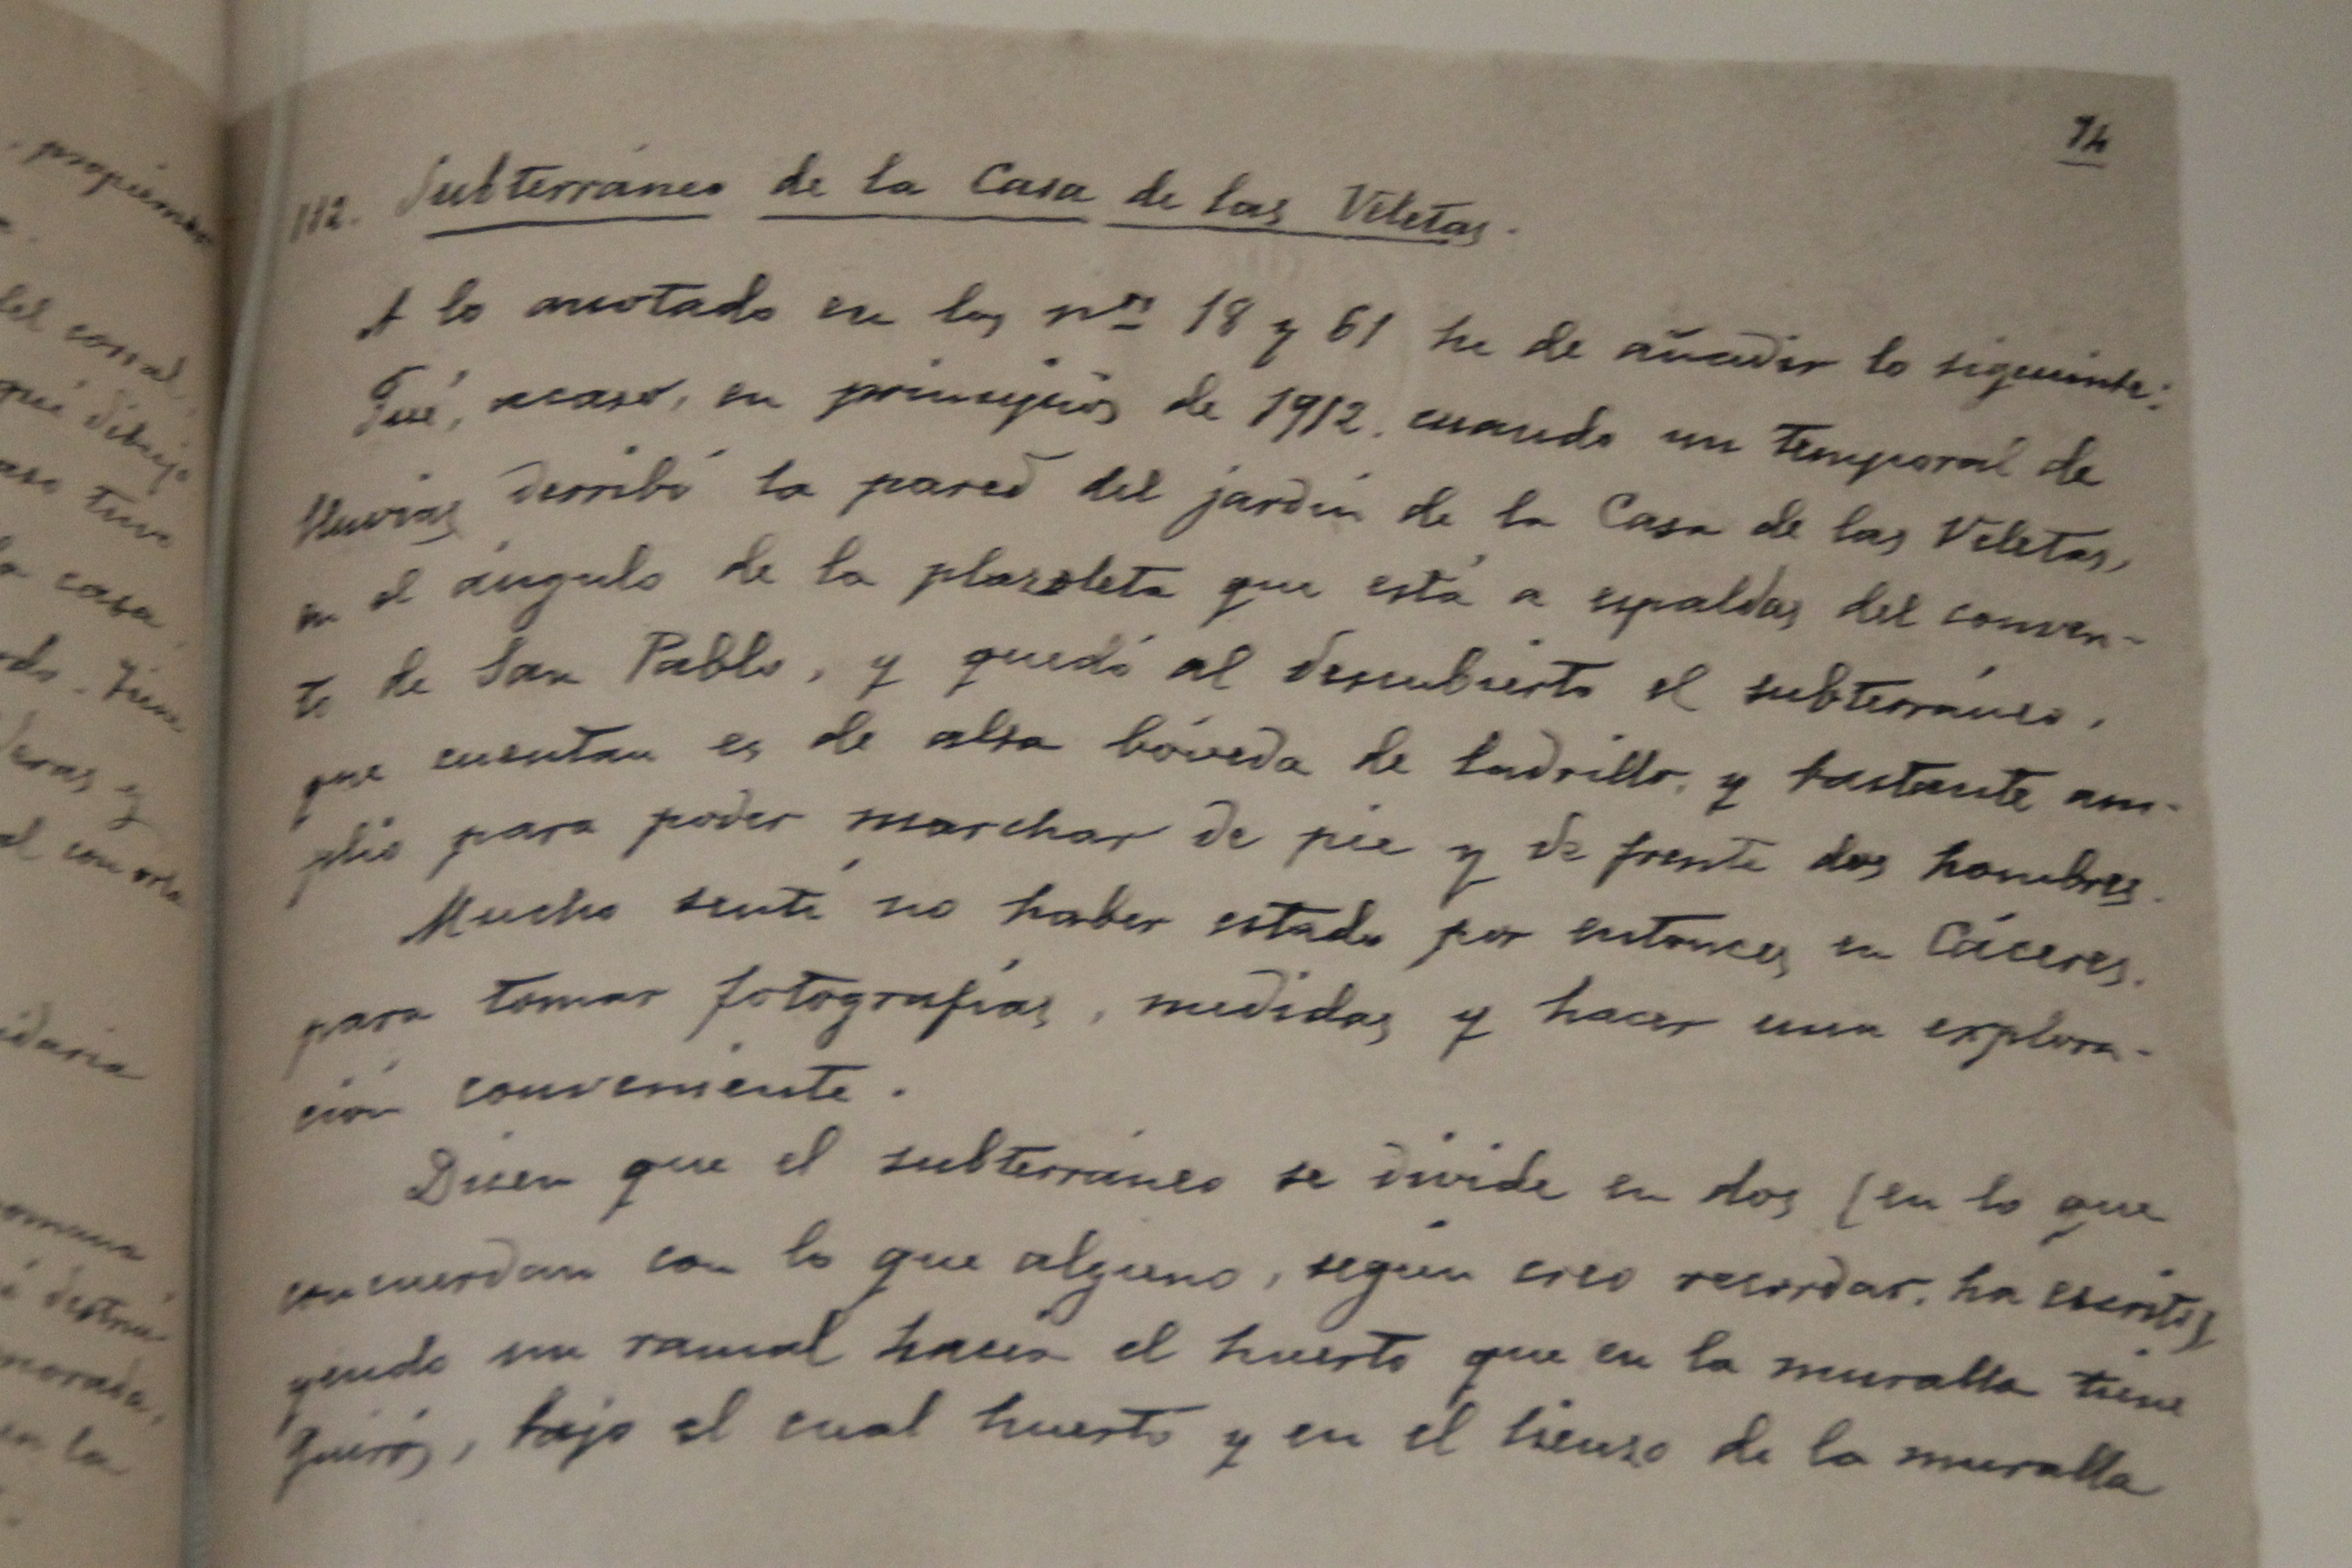 propiamen
del corral,
qué dibujo
aso tuvo
la casa.
Tiene
al con orla
morada,
en la
74
112. Subterráneo de la Casa de las Veletas.
A lo anotado en los nos 18 y 61 he de añadir lo siguiente:
Fué, acaso, en principios de 1912, cuando un temporal de
lluvias derribó la pared del jardín de la Casa de las Veletas,
en el ángulo de la plazoleta que está a espaldas del conven-
to de San Pablo, y quedó al descubierto el subterráneo,
que cuentan es de alta bóveda de ladrillo, y bastante am-
plio para poder marchar de pie y de frente dos hombres.
Mucho sentí no haber estado por entonces en Cáceres,
para tomar fotografías, medidas y hacer una explora-
ción conveniente.
Dicen que el subterráneo se divide en dos (en lo que
concuerdan con lo que alguno, según creo recordar, ha escrito)
yendo un ramal hacia el huerto que en la muralla tiene
Quirós, bajo el cual huerto y en el lienzo de la muralla